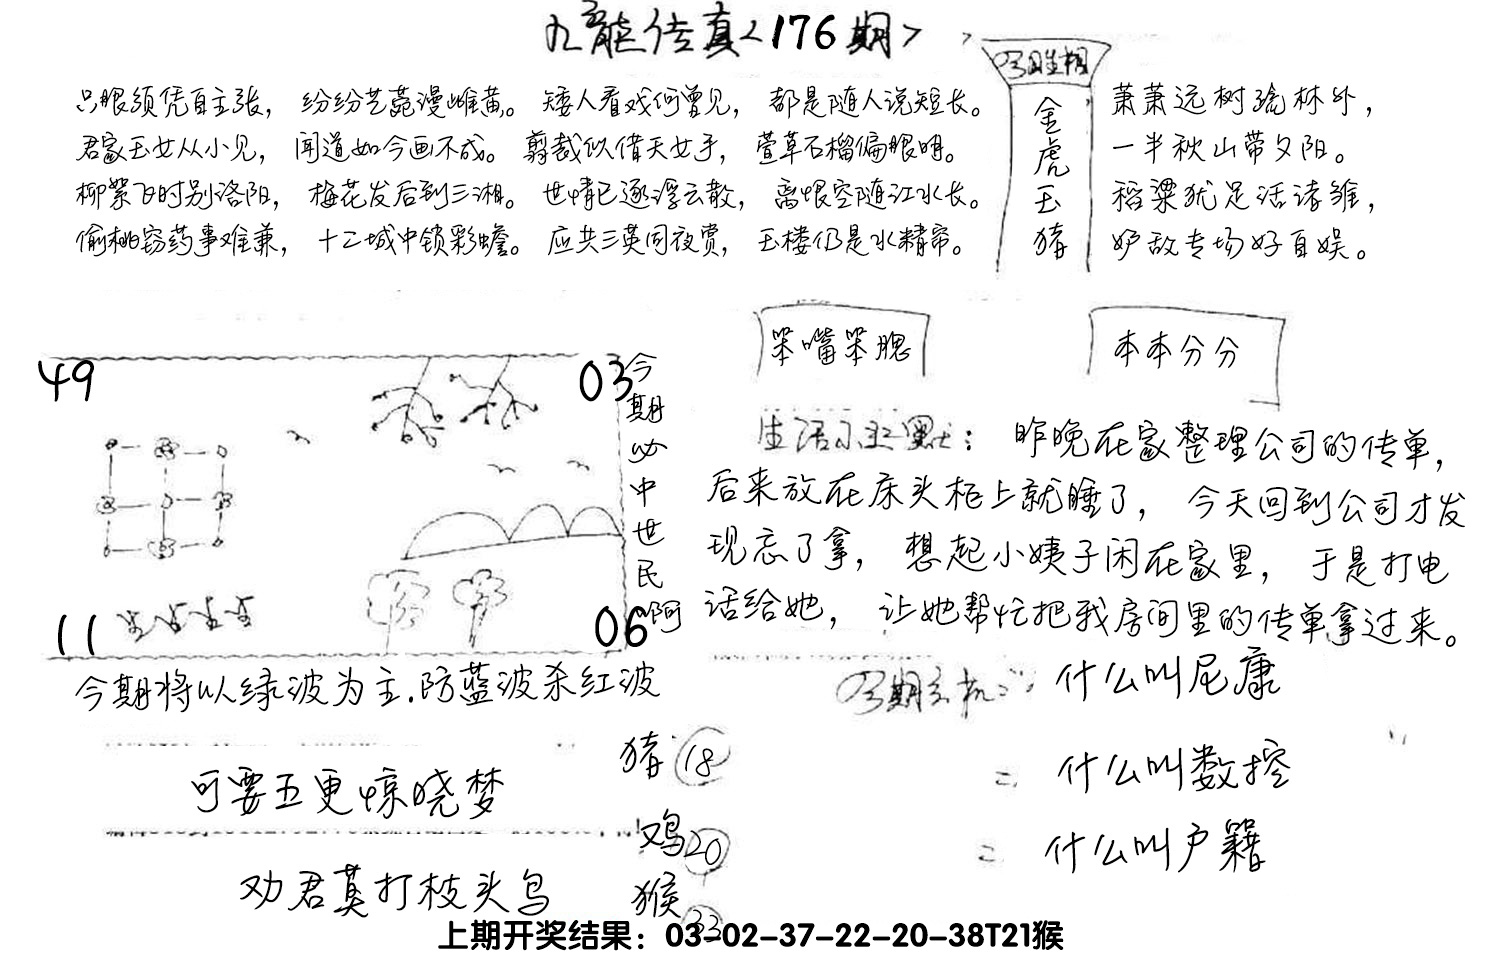 九龙传真<176期>
只眼须凭自主张，纷纷艺苑漫雌黄。矮人看戏何曾见，都是随人说短长。
君家玉女从小见，闻道如今画不成。剪裁似借天女手，萱草石榴偏眼明。
柳絮飞时别洛阳，梅花发后到三湘。世情已逐浮云散，离恨空随江水长。
偷桃窃药事难兼，十二城中锁彩蟾。应共三英同夜赏，玉楼仍是水精帘。
今期生相
金虎玉猪
萧萧远树疏林外，
一半秋山带夕阳。
稻粱犹足活诸雏，
妒敌专场好自娱。
笨嘴笨腮
本本分分
49
03
11
06
今期必中世民啊
生活小幽默：昨晚在家整理公司的传单，
后来放在床头柜上就睡了，今天回到公司才发
现忘了拿，想起小姨子闲在家里，于是打电
话给她，让她帮忙把我房间里的传单拿过来。
今期将以绿波为主.防蓝波杀红波
今期玄机：什么叫尼康
什么叫数控
什么叫户籍
可要五更惊晓梦
劝君莫打枝头鸟
猪 18
鸡 20
猴 33
上期开奖结果：03-02-37-22-20-38T21猴